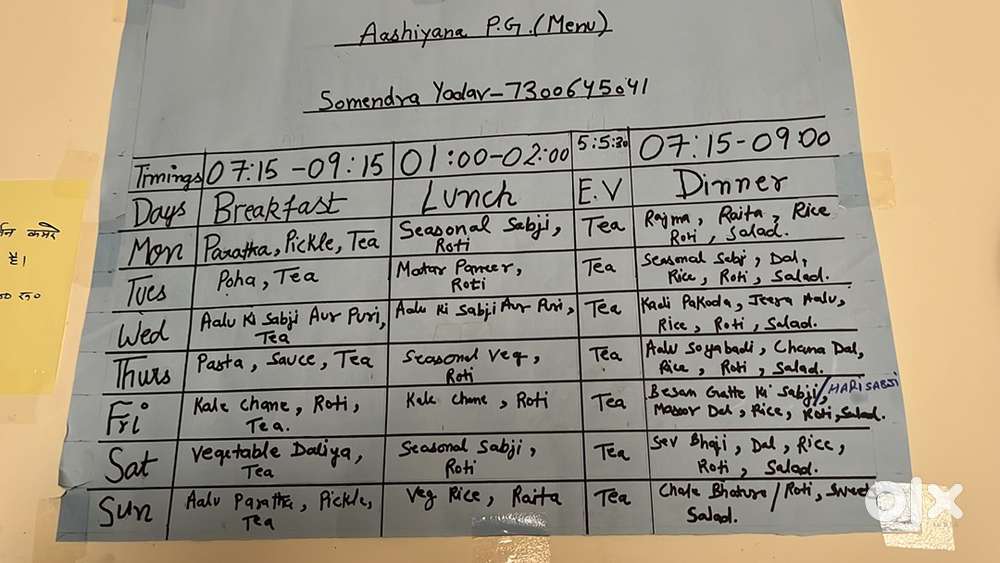 Aashiyana P.G.(Menu)
Somendra Yadav-7300645041
Timings 07:15 -09:15 01:00-02:00 5:5:30 07:15-09:00
Days Breakfast Lunch E.V Dinner
Mon Paratha, Pickle, Tea Seasonal Sabji, Roti Tea Rajma, Raita, Rice Roti, Salad.
Tues Poha, Tea Matar Paneer, Roti Tea Seasonal Sabji, Dal, Rice, Roti, Salad.
Wed Aalu Ki Sabji Aur Puri, Tea Aalu Ki Sabji Aur Puri, Tea Kadi Pakoda, Jeera Aalu, Rice, Roti, Salad.
Thurs Pasta, Sauce, Tea Seasonal Veg, Roti Tea Aalu Soyabadi, Chana Dal, Rice, Roti, Salad.
Fri Kale Chane, Roti, Tea. Kale Chane, Roti Tea Besan Gatte Ki Sabji/HARI SABJI, Masoor Dal, Rice, Roti, Salad.
Sat Vegetable Daliya, Tea Seasonal Sabji, Roti Tea Sev Bhaji, Dal, Rice, Roti, Salad.
Sun Aalu Paratha, Pickle, Tea Veg Rice, Raita Tea Chole Bhature/Roti, Sweet Salad.
कमरे
है।
रु०
olx